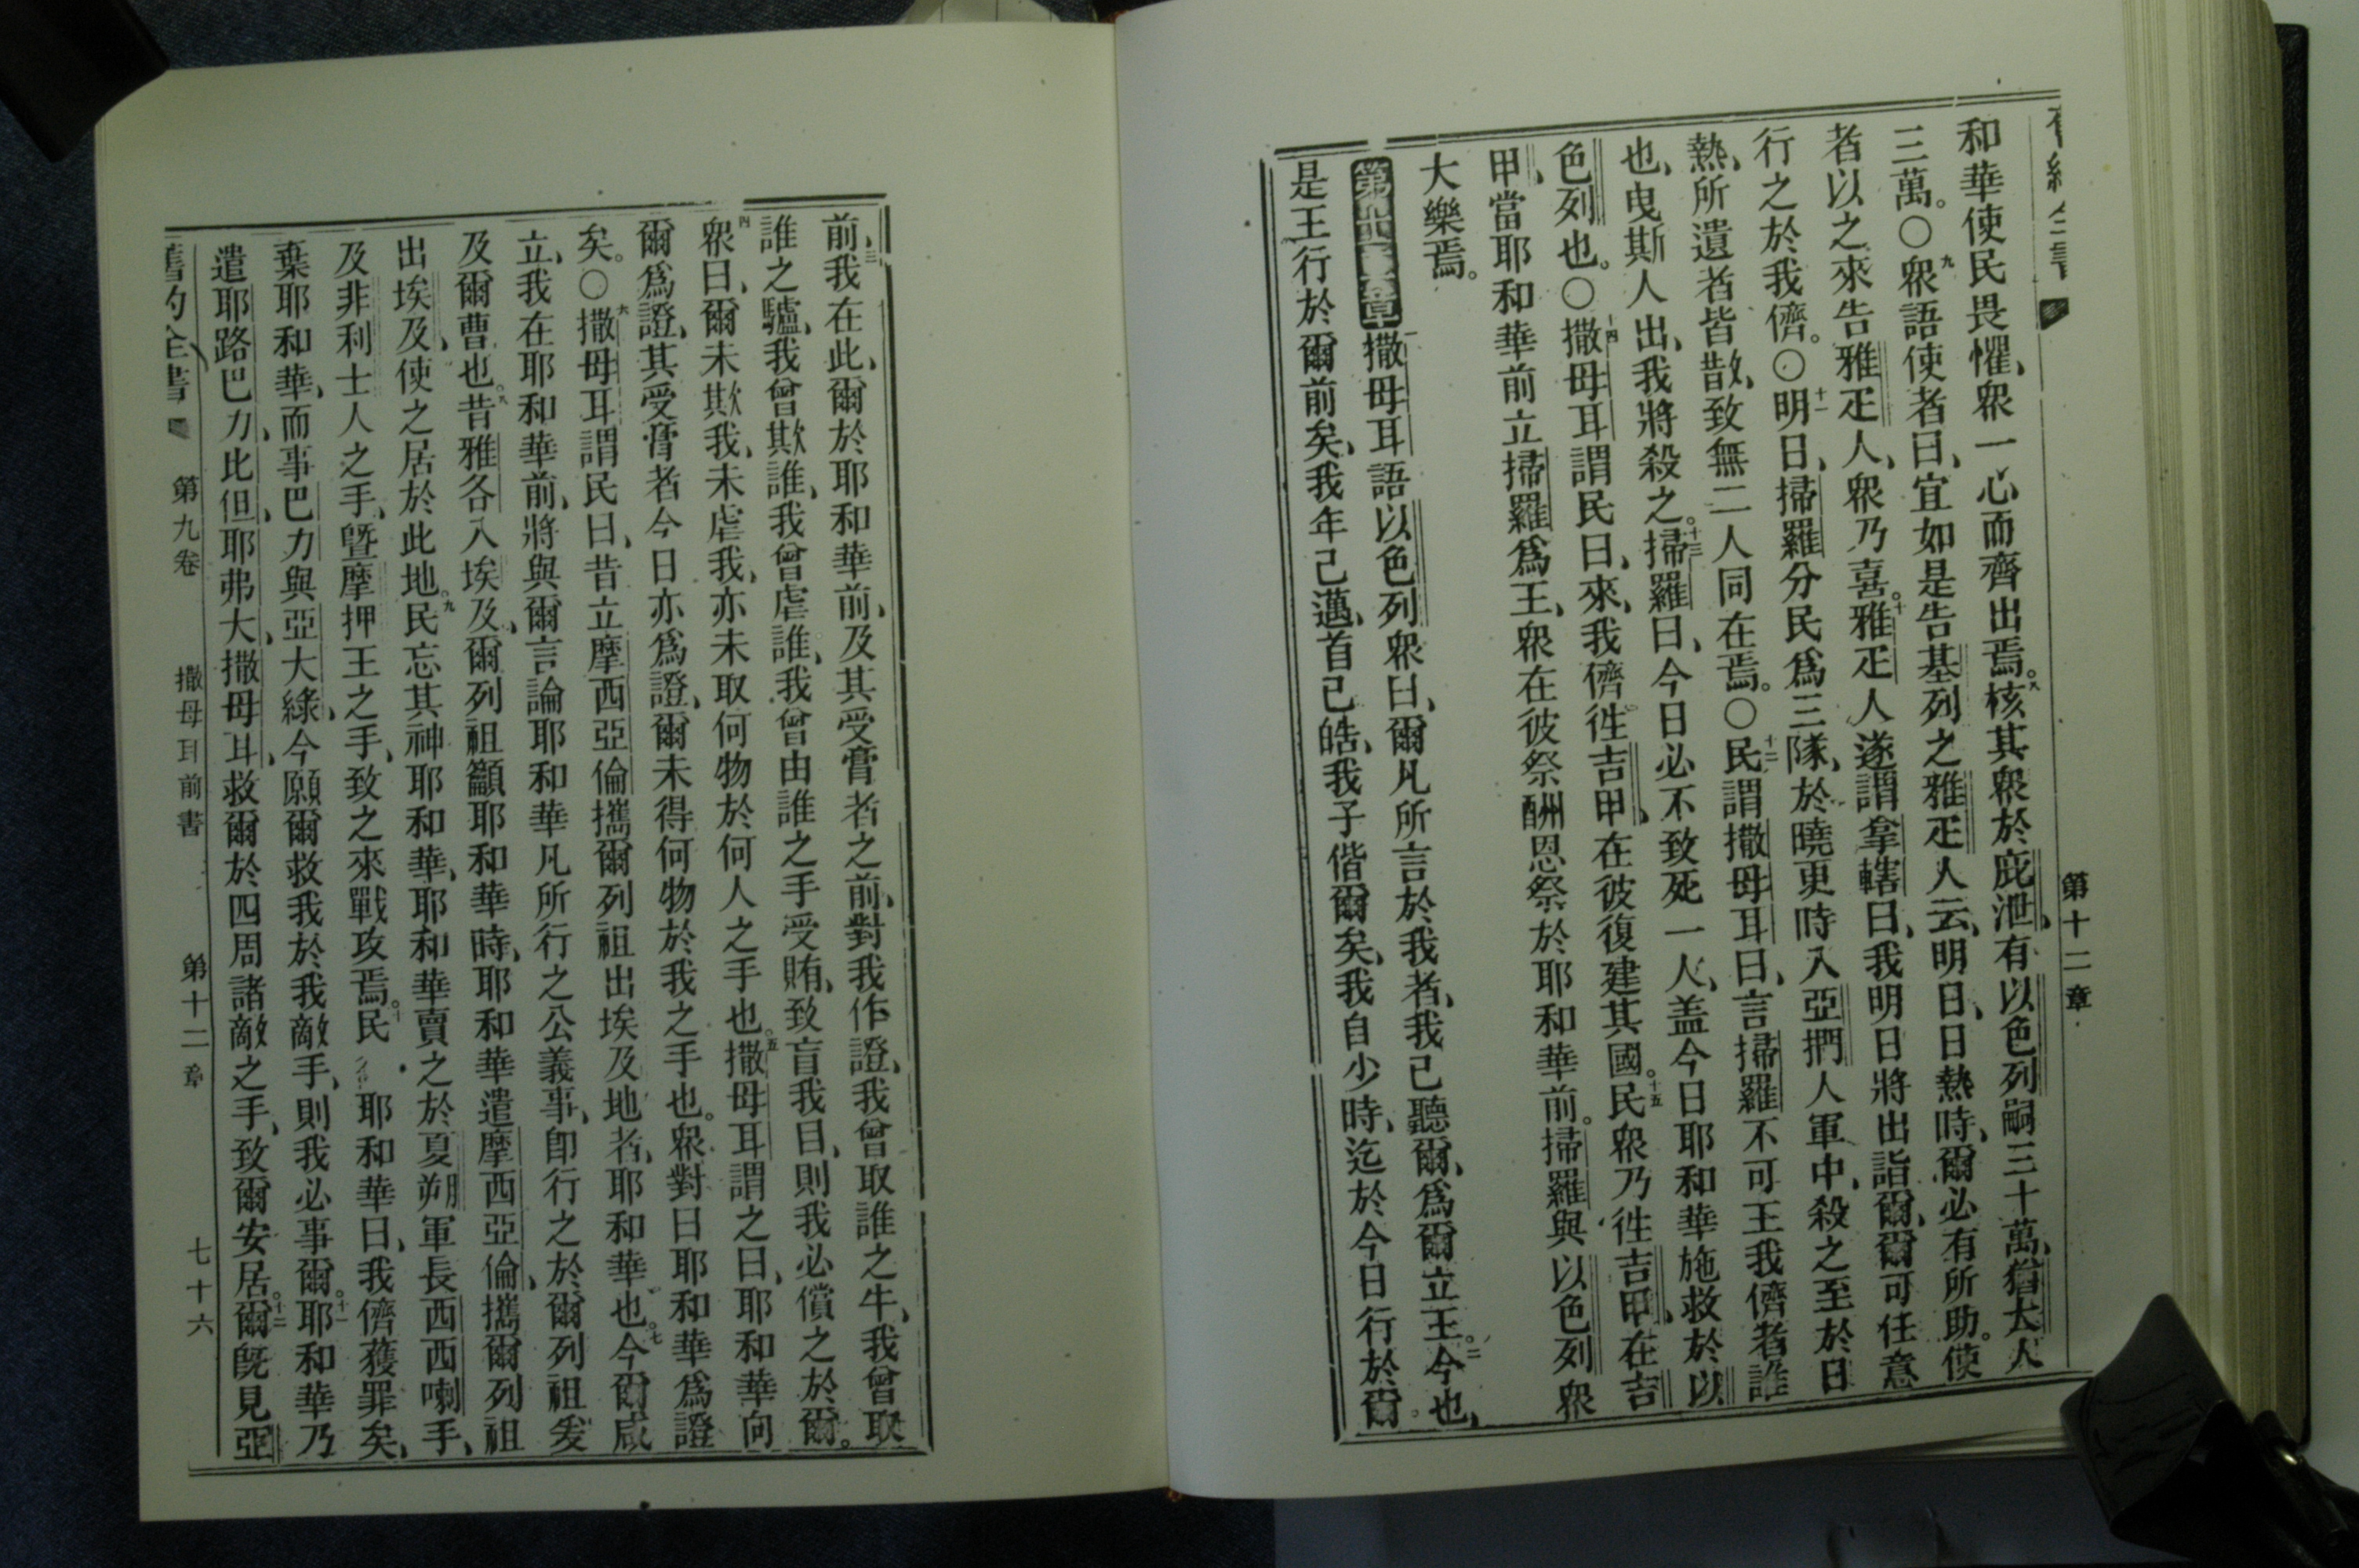 第十二章
和華使民畏懼、衆一心而齊出焉。八核其衆於庇泄、有以色列嗣三十萬、猶大人
三萬。〇九衆語使者曰、宜如是告基列之雅疋人云、明日、日熱時、爾必有所助。使
者以之來告雅疋人、衆乃喜。十雅疋人遂謂拿轄曰、我明日將出詣爾、爾可任意
行之於我儕。〇十一明日、掃羅分民爲三隊、於曉更時入亞捫人軍中、殺之至於日
熱、所遺者皆散、致無二人同在焉。〇十二民謂撒母耳曰、言掃羅不可王我儕者誰
也、曳斯人出、我將殺之。十三掃羅曰、今日必不致死一人、盖今日耶和華施救於以
色列也。〇十四撒母耳謂民曰、來、我儕徃吉甲、在彼復建其國。十五民衆乃徃吉甲、在吉
甲、當耶和華前立掃羅爲王、衆在彼祭酬恩祭於耶和華前。掃羅與以色列衆
大樂焉。
第十二章 一撒母耳語以色列衆曰、爾凡所言於我者、我已聽爾、爲爾立王。二今也、
是王行於爾前矣、我年已邁、首已皓、我子偕爾矣、我自少時、迄於今日行於爾
前、三我在此、爾於耶和華前、及其受膏者之前、對我作證、我曾取誰之牛、我曾取
誰之驢、我曾欺誰、我曾虐誰、我曾由誰之手受賄、致盲我目、則我必償之於爾。
四衆曰、爾未欺我、未虐我、亦未取何物於何人之手也。五撒母耳謂之曰、耶和華向
爾爲證、其受膏者今日亦爲證、爾未得何物於我之手也。衆對曰耶和華爲證
矣。〇六撒母耳謂民曰、昔立摩西亞倫攜爾列祖出埃及地者、耶和華也。七今爾咸
立、我在耶和華前、將與爾言論耶和華凡所行之公義事、卽行之於爾列祖爰
及爾曹也。八昔雅各入埃及、爾列祖籲耶和華時、耶和華遣摩西亞倫、攜爾列祖
出埃及、使之居於此地。九民忘其神耶和華、耶和華賣之於夏朔軍長西西喇手、
及非利士人之手、曁摩押王之手、致之來戰攻焉。十民 耶和華曰、我儕獲罪矣、
棄耶和華、而事巴力與亞大綠、今願爾救我於我敵手、則我必事爾。十一耶和華乃
遣耶路巴力、比但、耶弗大、撒母耳、救爾於四周諸敵之手、致爾安居。十二爾旣見亞
舊約全書 第九卷 撒母耳前書 第十二章 七十六